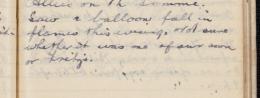 allies on th Somme.
Saw a balloon fall in
flames this evening. Not sure
whether it was one of our own
or fritz's.